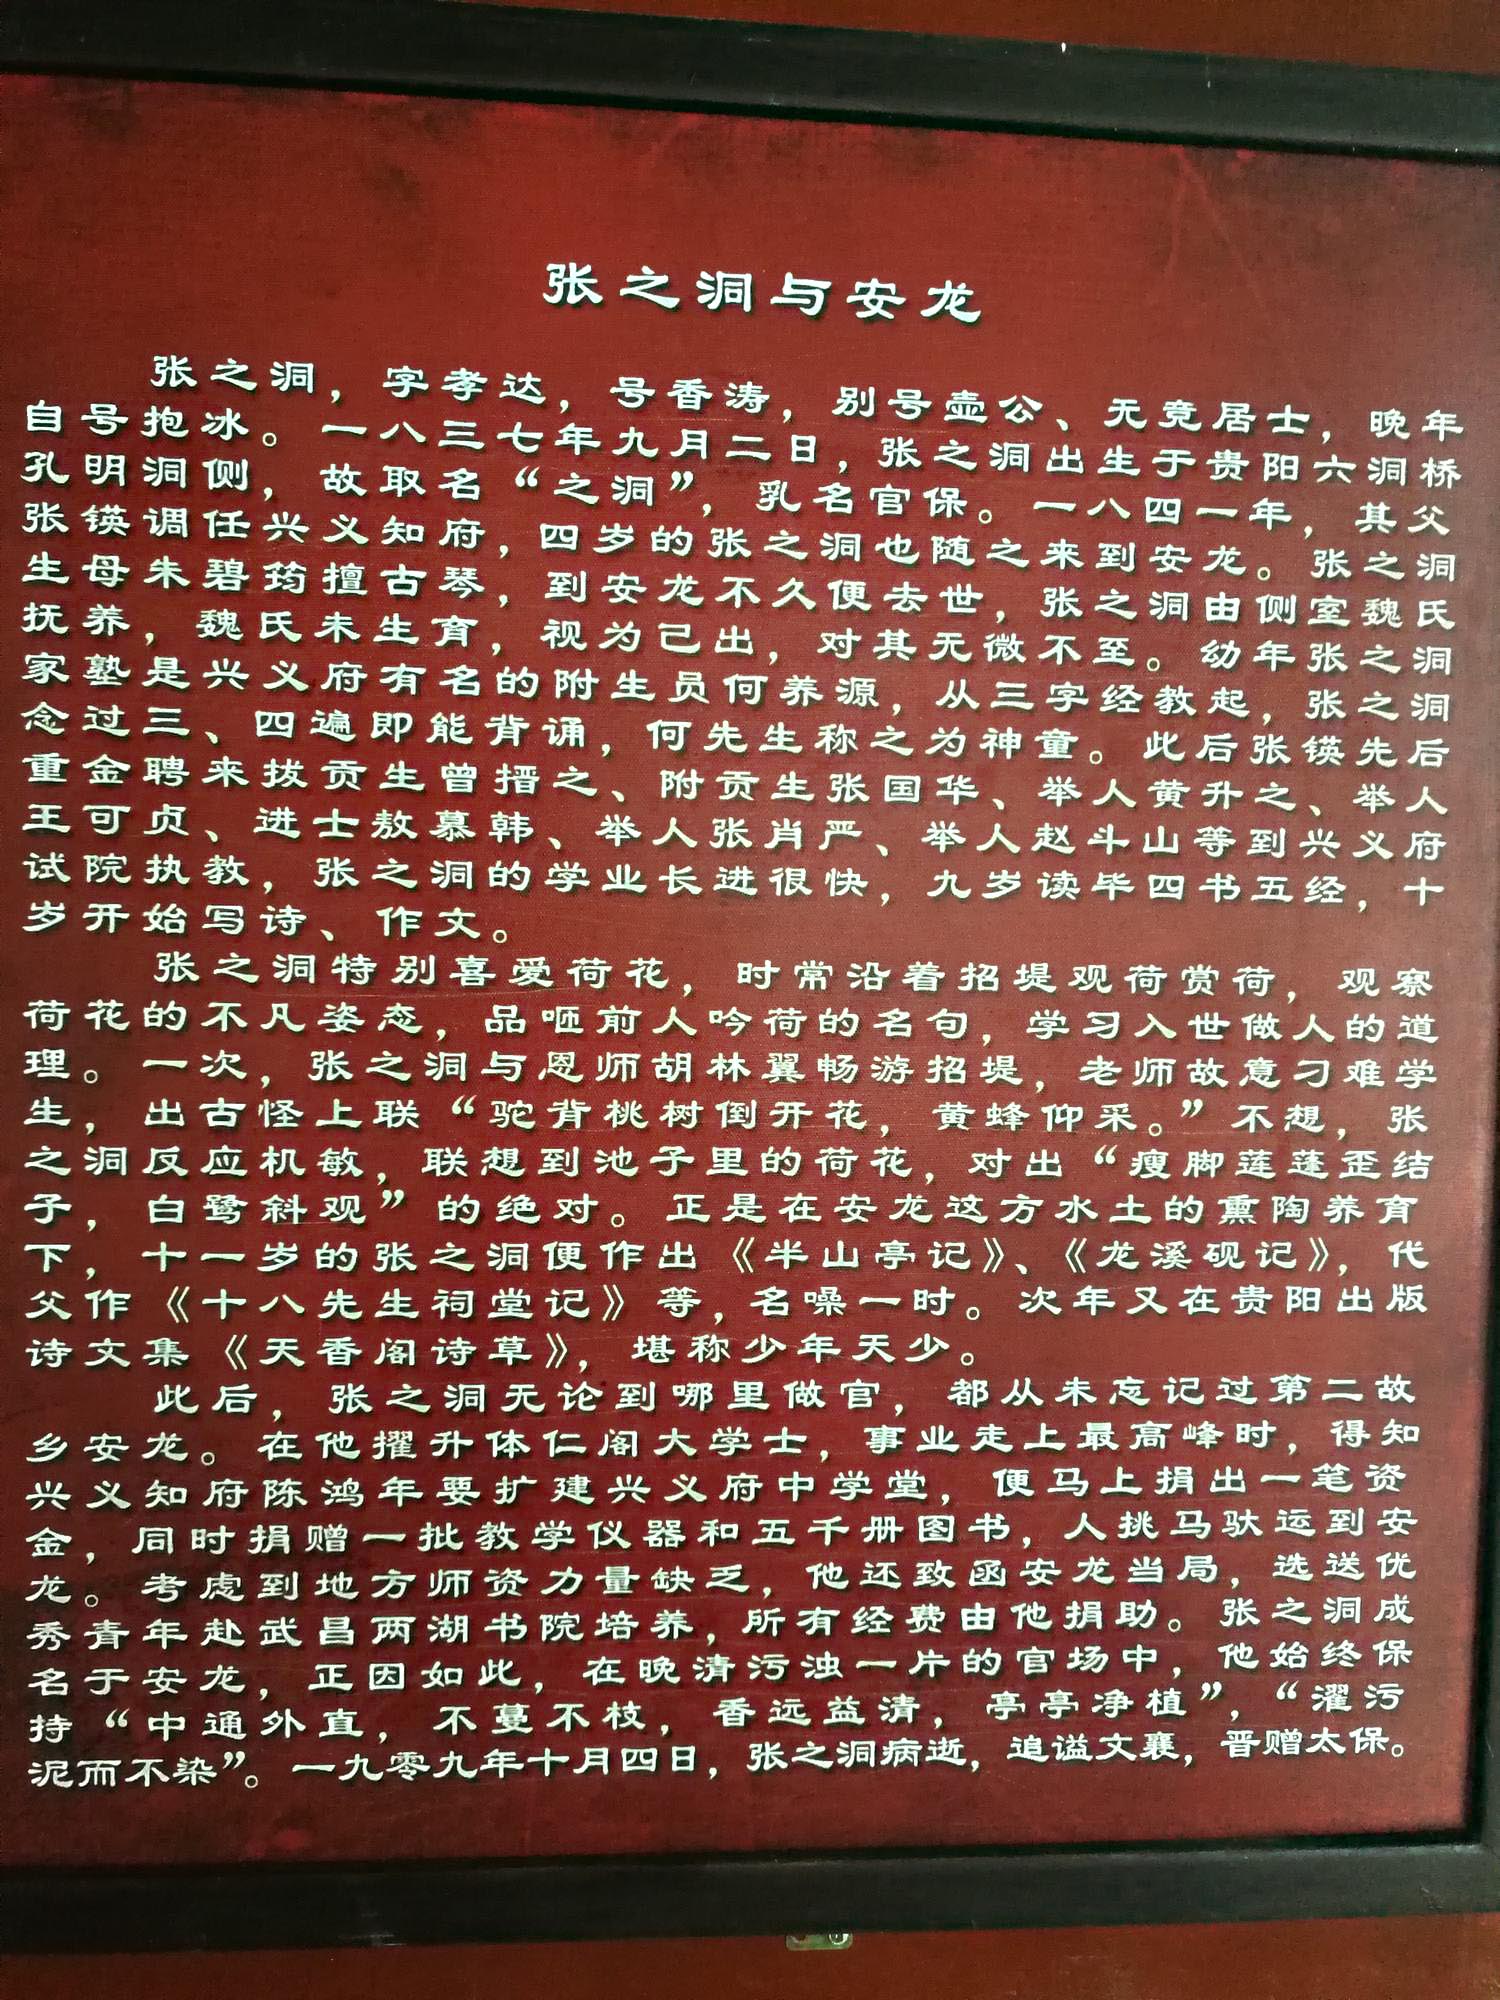 张之洞与安龙
张之洞，字孝达，号香涛，别号壶公、无竞居士，晚年
自号抱冰。一八三七年九月二日，张之洞出生于贵阳六洞桥
孔明洞侧，故取名“之洞”，乳名官保。一八四一年，其父
张锳调任兴义知府，四岁的张之洞也随之来到安龙。张之洞
生母朱碧筠擅古琴，到安龙不久便去世，张之洞由侧室魏氏
抚养，魏氏未生育，视为己出，对其无微不至。幼年张之洞
家塾是兴义府有名的附生员何养源，从三字经教起，张之洞
念过三、四遍即能背诵，何先生称之为神童。此后张锳先后
重金聘来拔贡生曾搢之、附贡生张国华、举人黄升之、举人
王可贞、进士敖慕韩、举人张肖严、举人赵斗山等到兴义府
试院执教，张之洞的学业长进很快，九岁读毕四书五经，十
岁开始写诗、作文。
张之洞特别喜爱荷花，时常沿着招堤观荷赏荷，观察
荷花的不凡姿态，品咂前人吟荷的名句，学习入世做人的道
理。一次，张之洞与恩师胡林翼畅游招堤，老师故意刁难学
生，出古怪上联“驼背桃树倒开花，黄蜂仰采。”不想，张
之洞反应机敏，联想到池子里的荷花，对出“瘦脚莲蓬歪结
子，白鹭斜观”的绝对。正是在安龙这方水土的熏陶养育
下，十一岁的张之洞便作出《半山亭记》、《龙溪砚记》，代
父作《十八先生祠堂记》等，名噪一时。次年又在贵阳出版
诗文集《天香阁诗草》，堪称少年天少。
此后，张之洞无论到哪里做官，都从未忘记过第二故
乡安龙。在他擢升体仁阁大学士，事业走上最高峰时，得知
兴义知府陈鸿年要扩建兴义府中学堂，便马上捐出一笔资
金，同时捐赠一批教学仪器和五千册图书，人挑马驮运到安
龙。考虑到地方师资力量缺乏，他还致函安龙当局，选送优
秀青年赴武昌两湖书院培养，所有经费由他捐助。张之洞成
名于安龙，正因如此，在晚清污浊一片的官场中，他始终保
持“中通外直，不蔓不枝，香远益清，亭亭净植”，“濯污
泥而不染”。一九零九年十月四日，张之洞病逝，追谥文襄，晋赠太保。